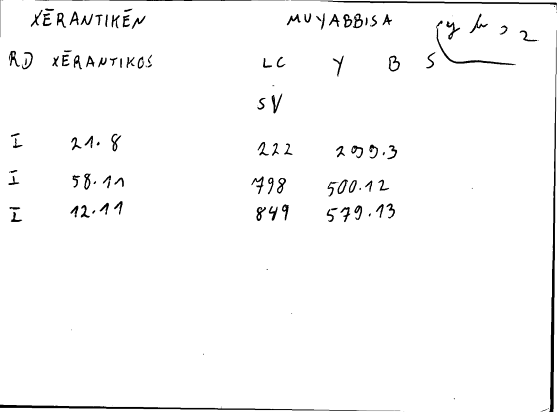 XĒRANTIKĒN MUYABBISA y b s 2
RD XĒRANTIKOS LC Y B S
SV
I 21.8 222 299.3
I 58.11 798 500.12
I 12.11 849 579.13